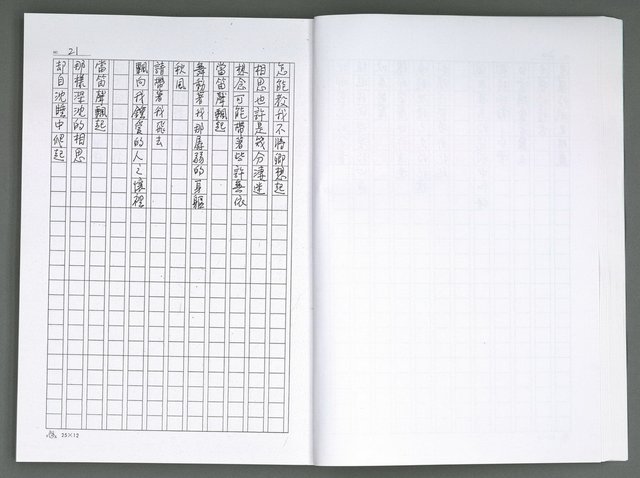 No. 21
怎能教我不將鄉想起
相思也許是幾分淒迷
想念可能帶著些許無依
當笛聲飄起
舞動著我那孱弱的身軀
秋風
請帶著我飛去
飄向我鍾愛的人之懷裡
當笛聲飄起
那樣深沈的相思
卻自沈睡中爬起
25×12